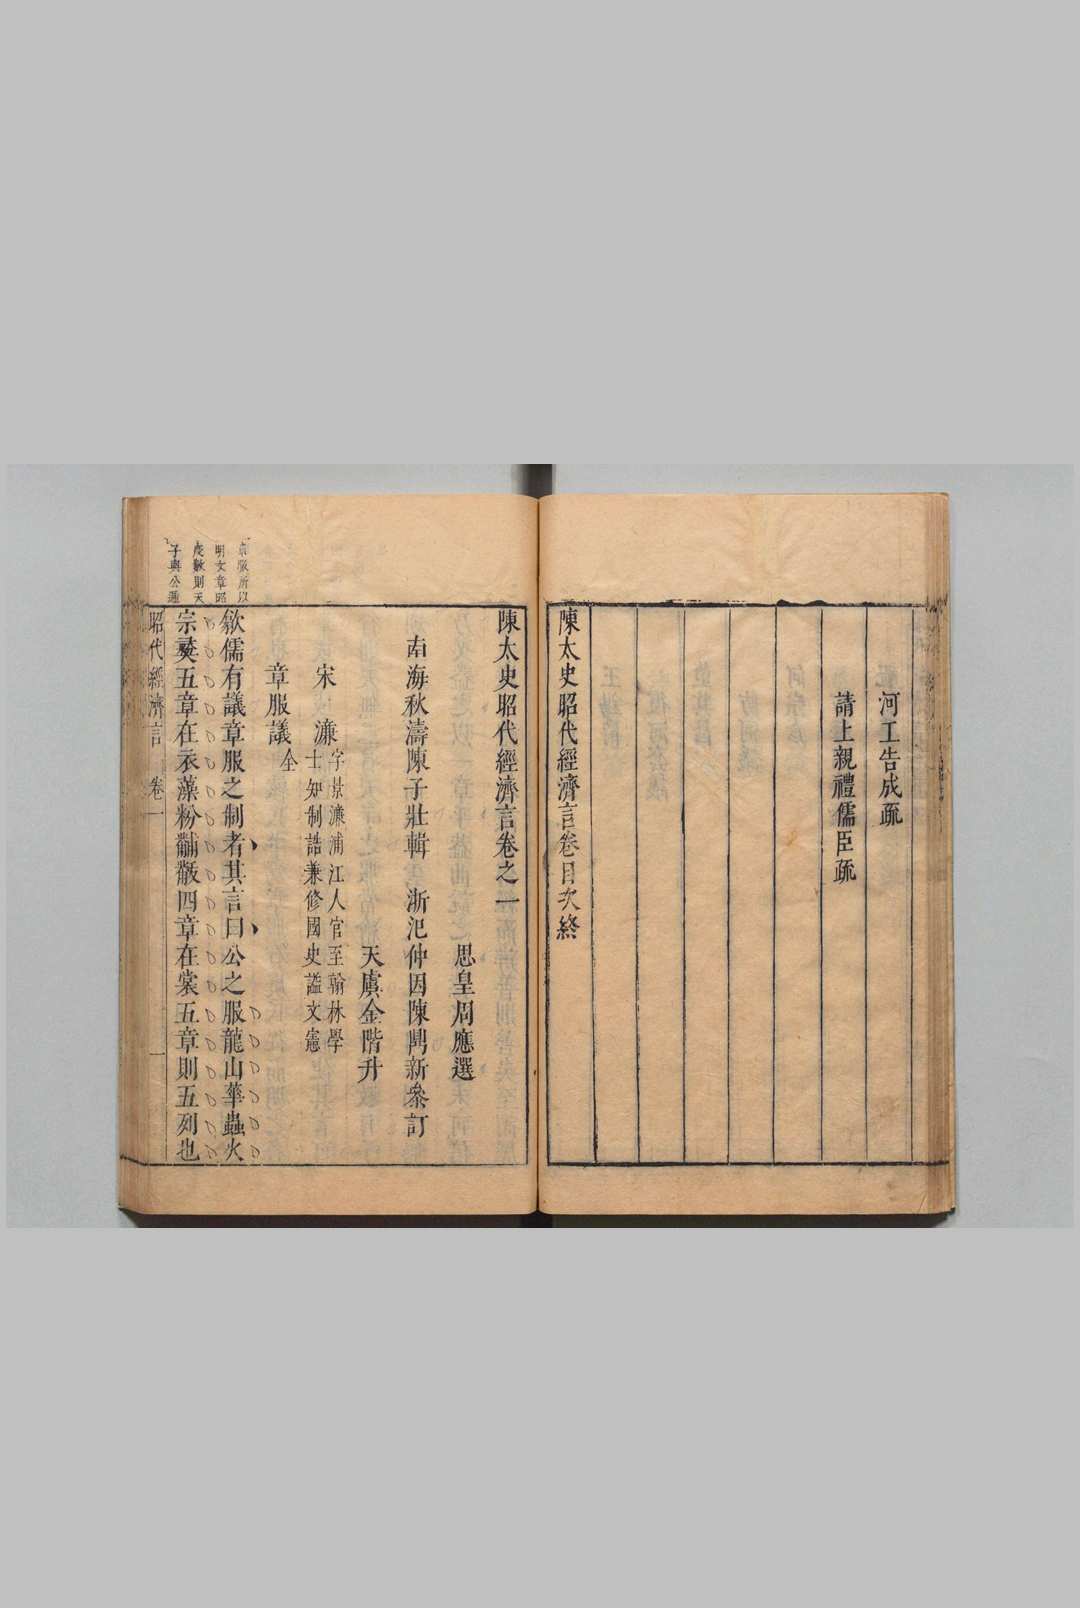 河工告成疏
請上親禮儒臣疏
陳太史昭代經濟言卷目次終
陳太史昭代經濟言卷之一
思皇周應選
南海秋濤陳子壯輯　浙氾仲因陳闁新叅訂
天虞金階升
宋　濂 字景濂浦江人官至翰林學
士知制誥兼修國史謚文憲
章服議全
歙儒有議章服之制者其言曰公之服龍山華蟲火
宗彝五章在衣藻粉黼黻四章在裳五章則五列也
服所以
明文章昭
度數則天
子與公通
昭代經濟言　卷一　一